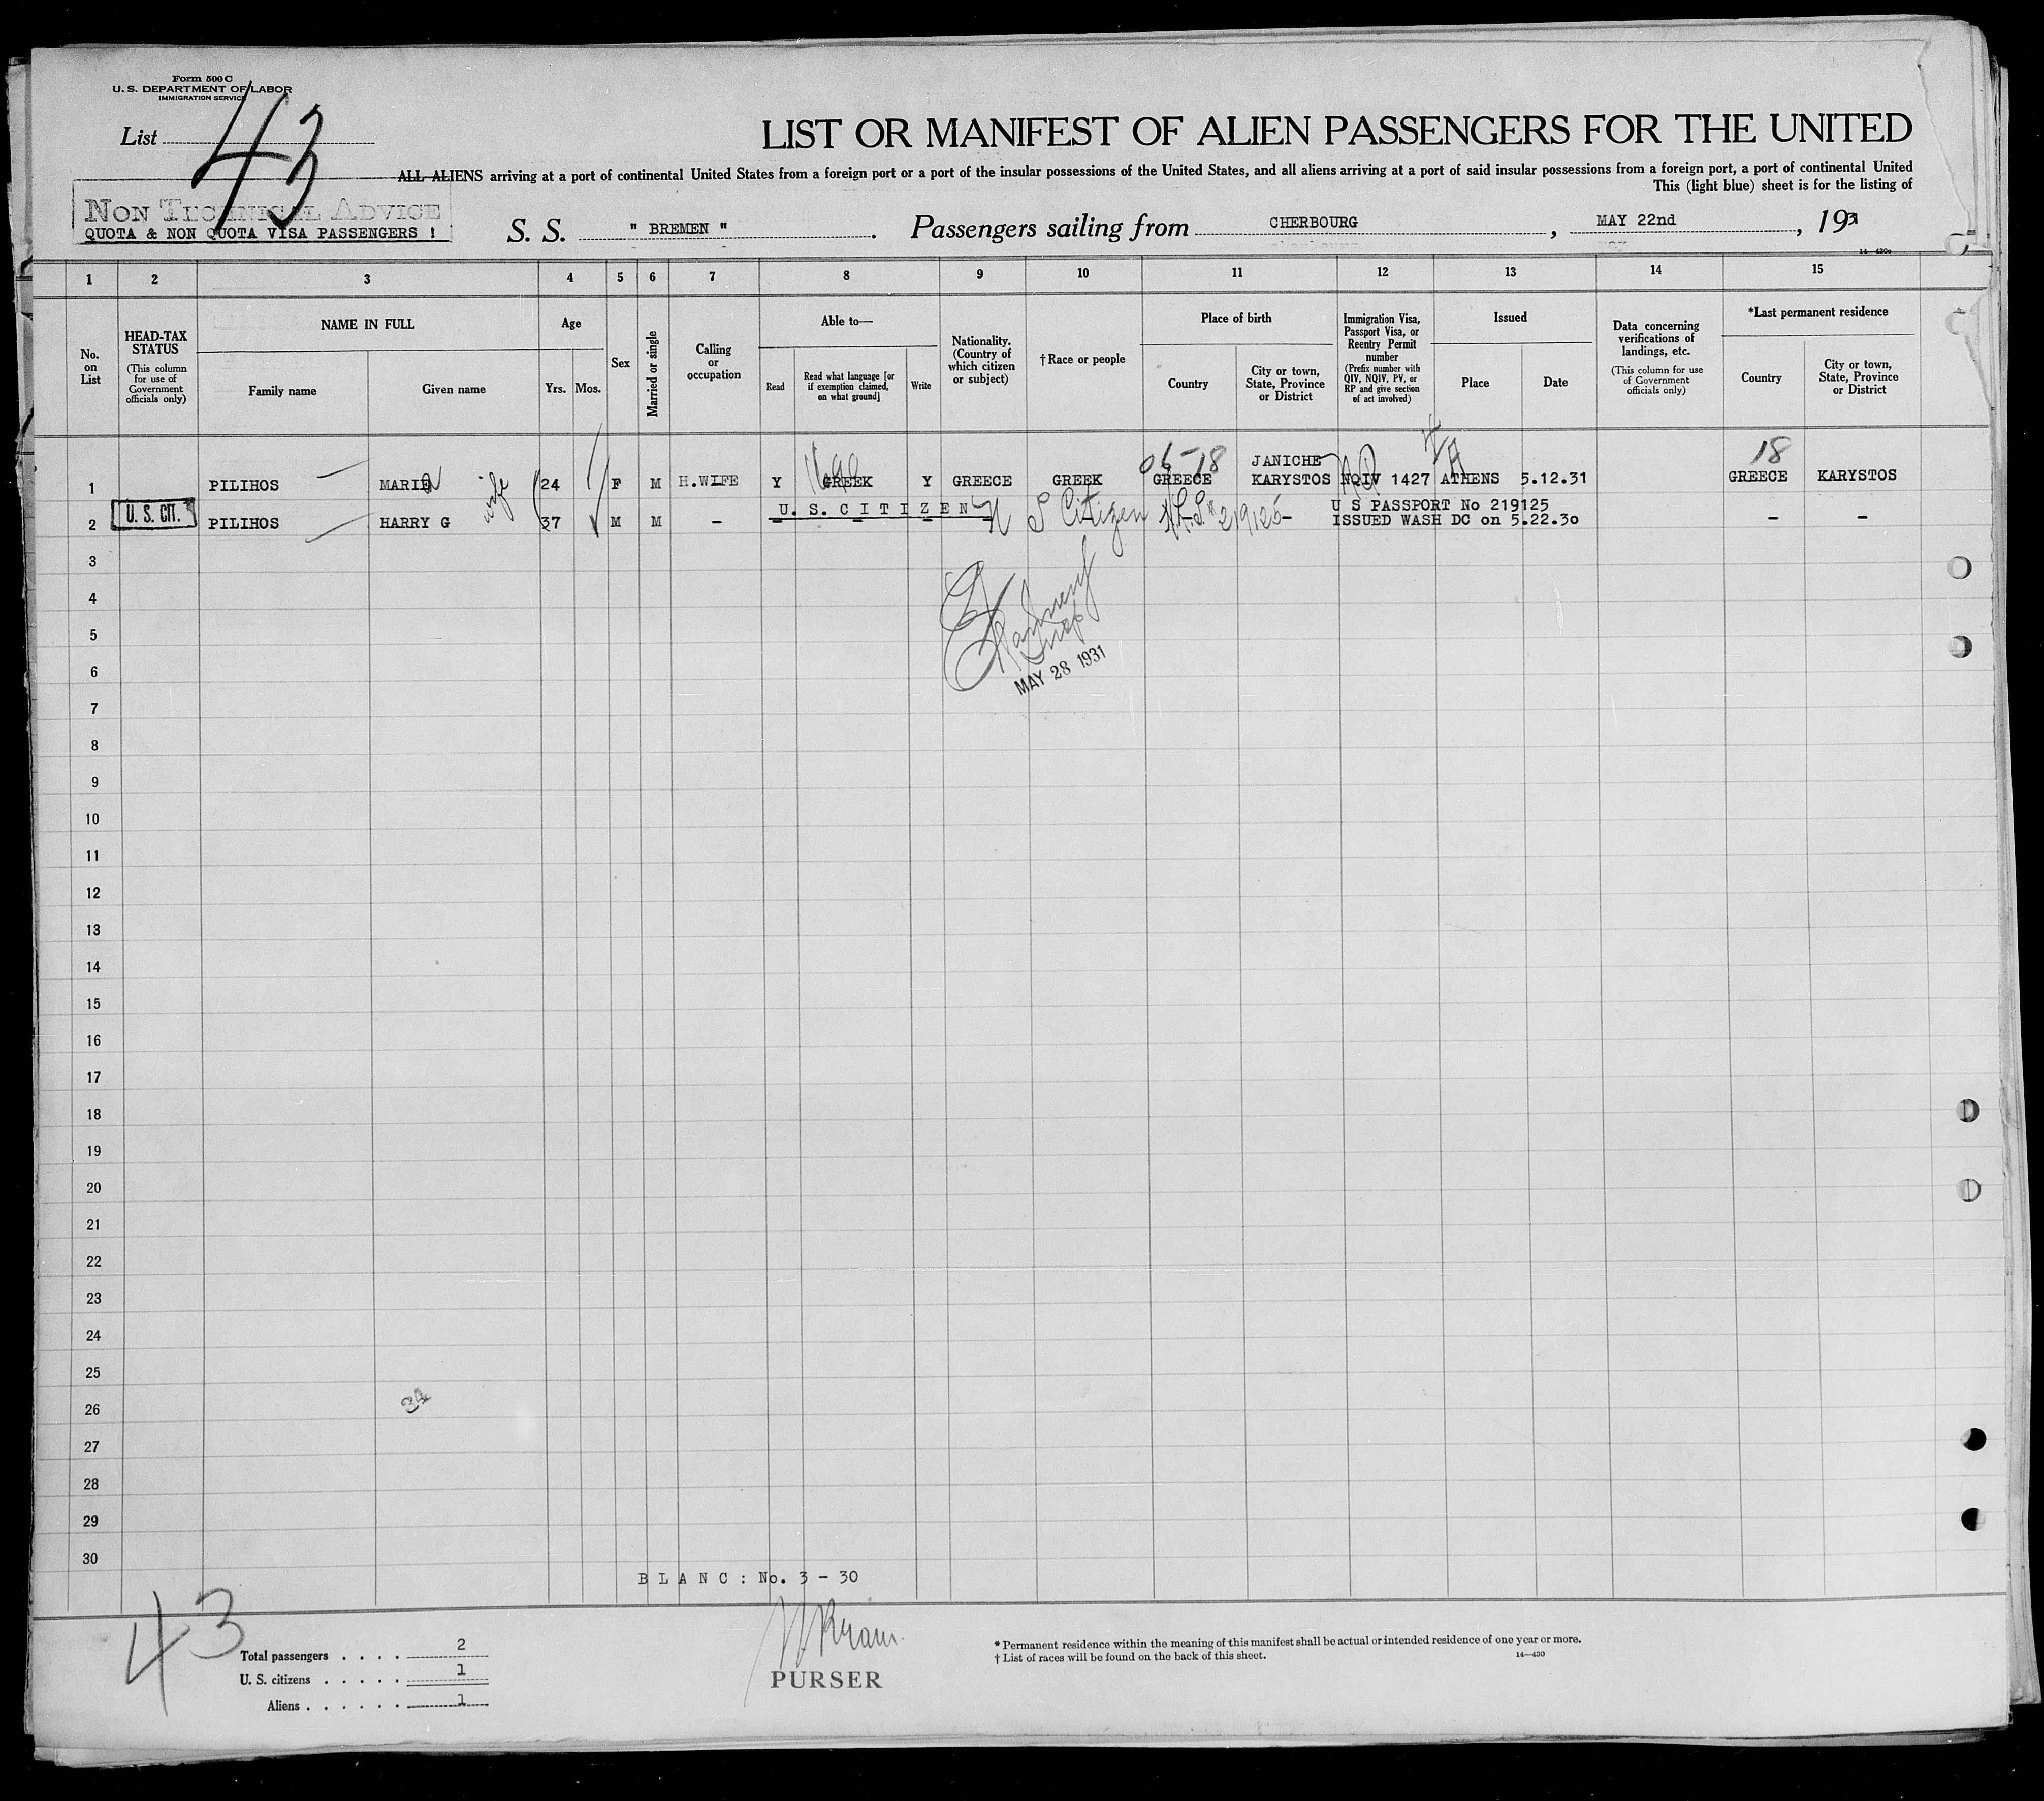 Form 500 C
U. S. DEPARTMENT OF LABOR
IMMIGRATION SERVICE
List 43
LIST OR MANIFEST OF ALIEN PASSENGERS FOR THE UNITED
ALL ALIENS arriving at a port of continental United States from a foreign port or a port of the insular possessions of the United States, and all aliens arriving at a port of said insular possessions from a foreign port, a port of continental United
This (light blue) sheet is for the listing of
NON TECHNICAL ADVICE
QUOTA & NON QUOTA VISA PASSENGERS !
S. S. " BREMEN " . Passengers sailing from CHERBOURG , MAY 22nd , 1931
14—430c
1 2 3 4 5 6 7 8 9 10 11 12 13 14 15
No. on List
HEAD-TAX STATUS
(This column for use of Government officials only)
NAME IN FULL
Family name
Given name
Age
Yrs. Mos.
Sex
Married or single
Calling or occupation
Able to—
Read
Read what language [or if exemption claimed, on what ground]
Write
Nationality. (Country of which citizen or subject)
† Race or people
Place of birth
Country
City or town, State, Province or District
Immigration Visa, Passport Visa, or Reentry Permit number
(Prefix number with QIV, NQIV, PV, or RP and give section of act involved)
Issued
Place
Date
Data concerning verifications of landings, etc.
(This column for use of Government officials only)
*Last permanent residence
Country
City or town, State, Province or District
06-18 JANICHE 18
1 PILIHOS MARIA wife 24 F M H.WIFE Y GREEK Y GREECE GREEK GREECE KARYSTOS NQIV 1427 ATHENS 5.12.31 GREECE KARYSTOS
U. S. CIT.
U. S. CITIZEN U S Citizen 219125 U S PASSPORT No 219125
2 PILIHOS HARRY G 37 M M - - - - - - ISSUED WASH DC on 5.22.30 - -
3
4
5
6
MAY 28 1931
7
8
9
10
11
12
13
14
15
16
17
18
19
20
21
22
23
24
25
26
34
27
28
29
30
BLANC: No. 3 - 30
43
Total passengers . . . . 2
U. S. citizens . . . . . 1
Aliens . . . . . . 1
PURSER
* Permanent residence within the meaning of this manifest shall be actual or intended residence of one year or more.
† List of races will be found on the back of this sheet.
14—430